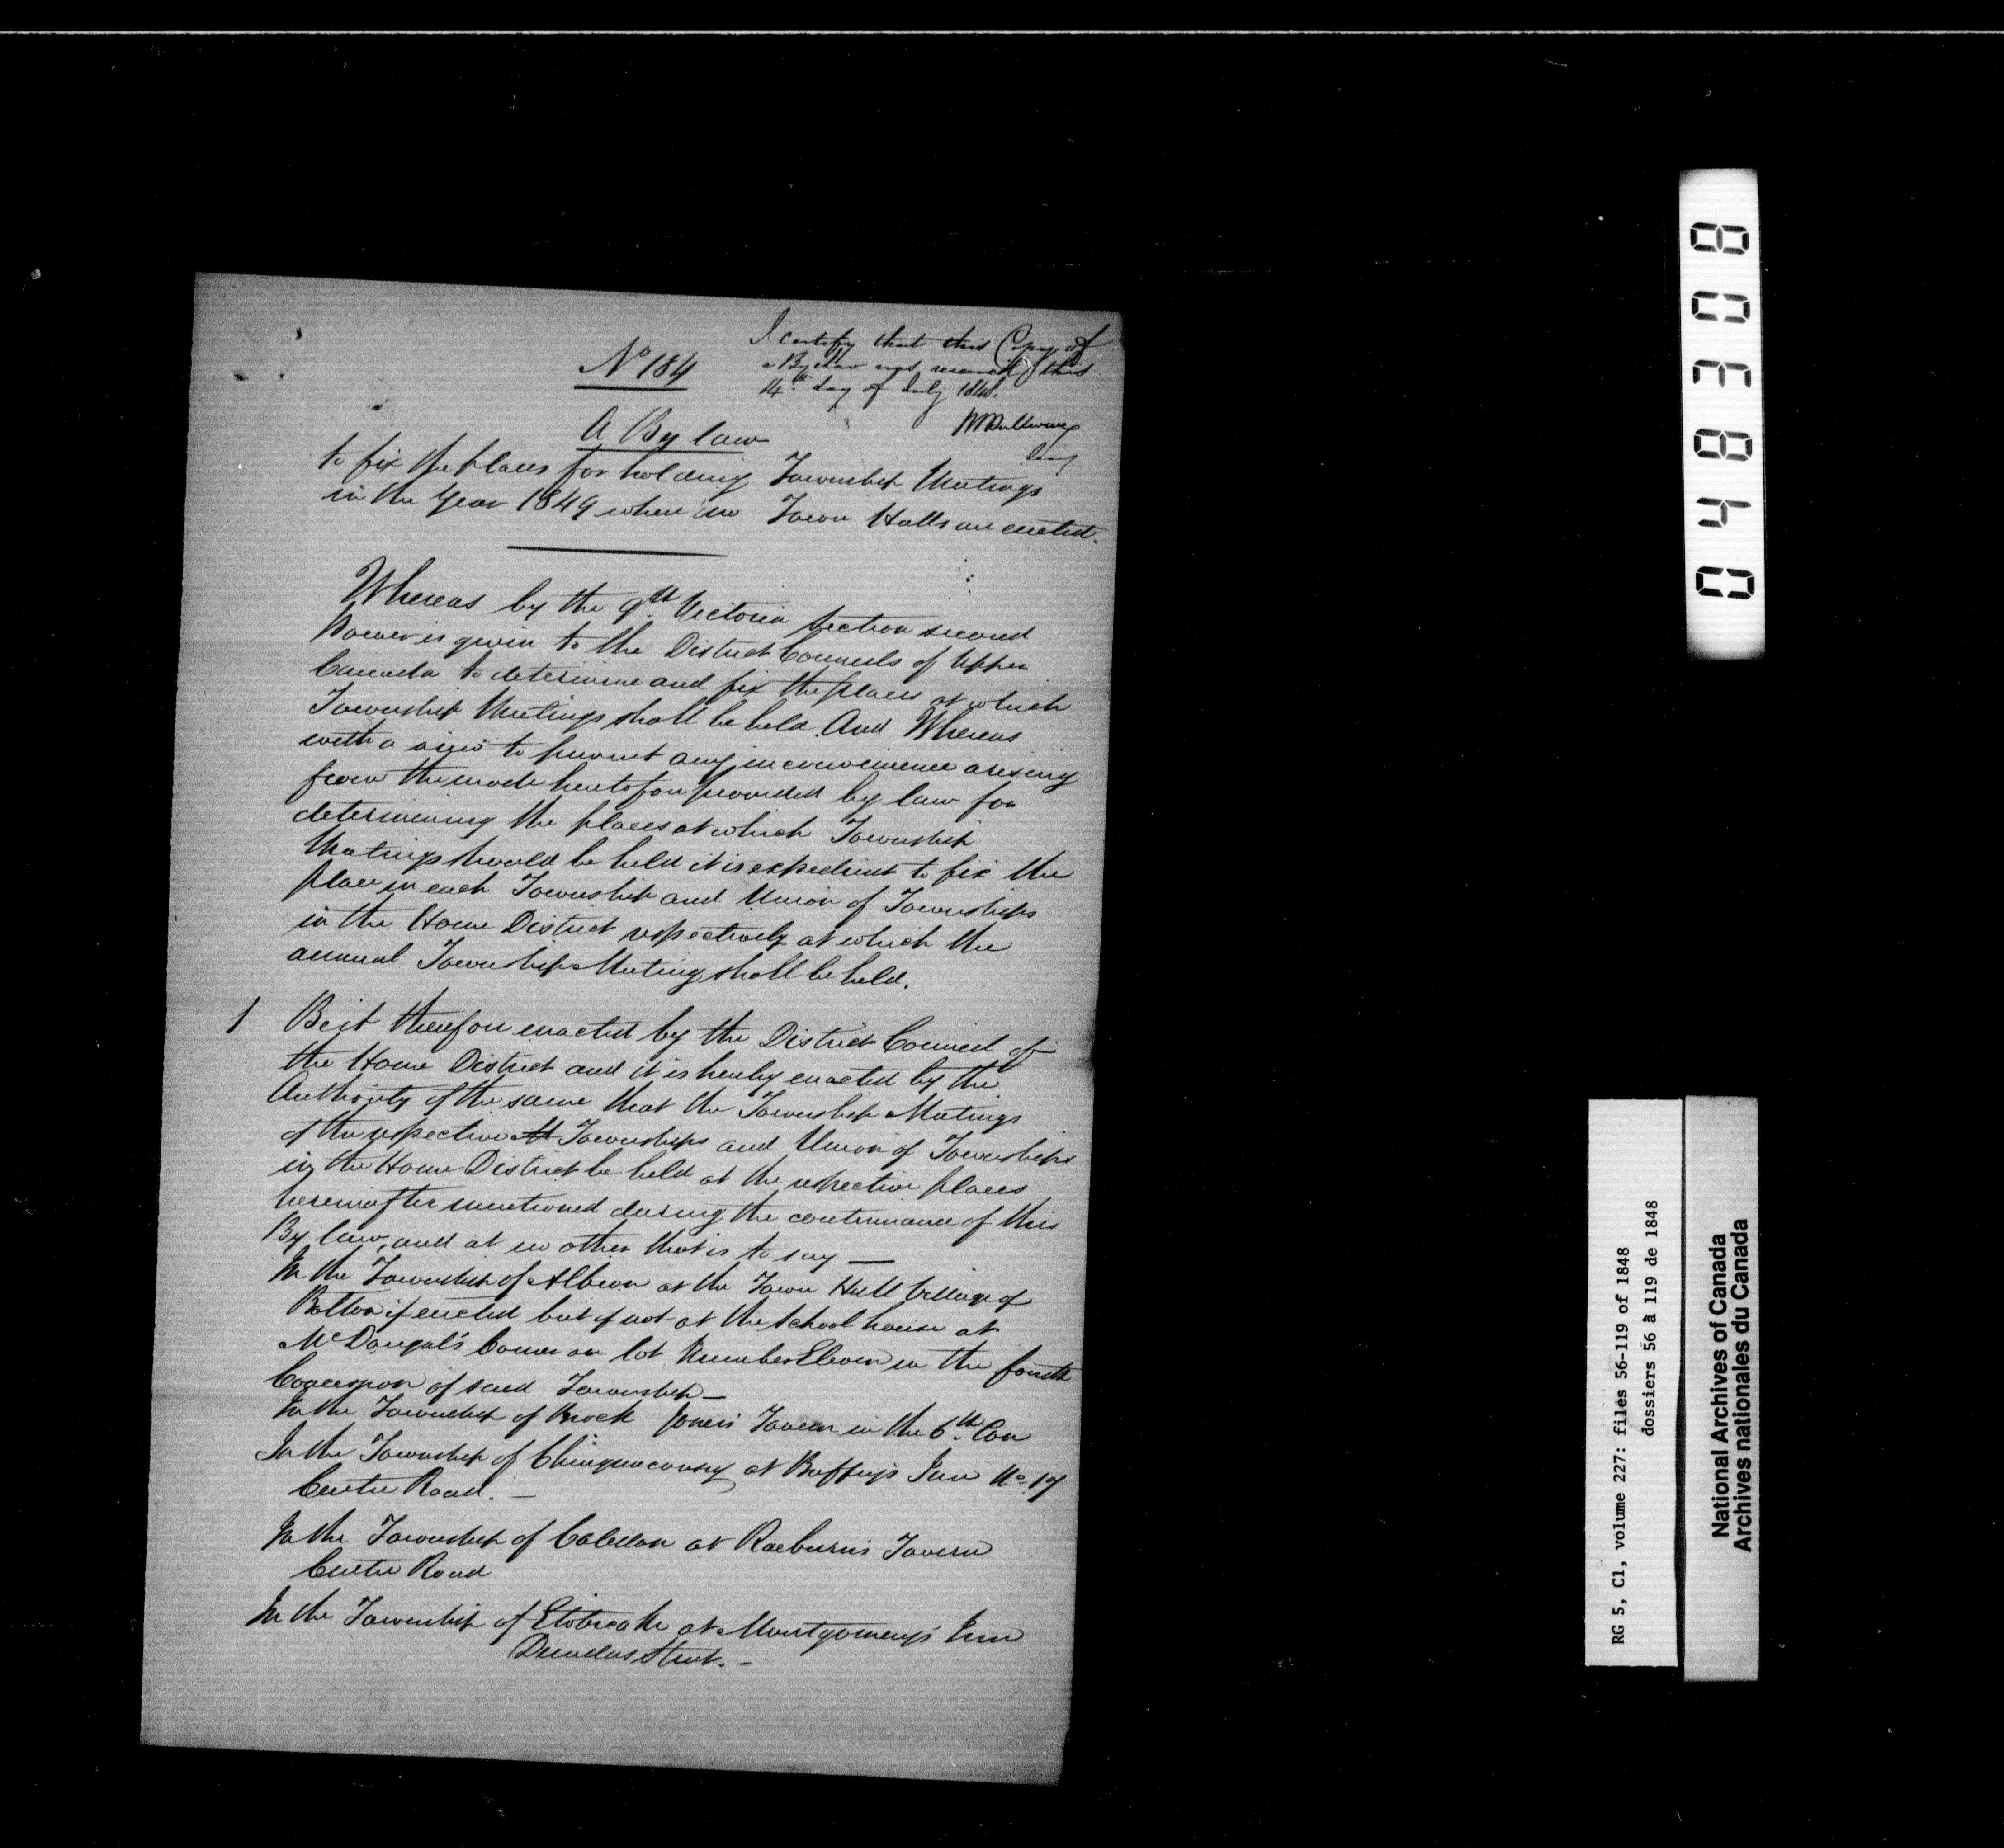 I certify that this Copy of
a By Law was received this
14th day of July 1848.
No 184
A By law
to fix the places for holding Township Meetings
in the Year 1849 where no Town Halls are erected.
Whereas by the 9th Victoria Section second
Power is given to the District Councils of Upper
Canada to determine and fix the places at which
Township Meetings shall be held. And Whereas
with a view to prevent any inconvenience arising
from the mode heretofore provided by law for
determining the places at which Township
Meetings should be held it is expedient to fix the
place in each Township and Union of Townships
in the Home District respectively at which the
annual Township Meeting shall be held.
1 Be it therefore enacted by the District Council of
the Home District and it is hereby enacted by the
Authority of the same that the Township Meetings
of the respective Townships and Union of Townships
in the Home District be held at the respective places
hereinafter mentioned during the continuance of this
By law, and at no other that is to say —
In the Township of Albion at the Town Hall Village of
Bolton if erected but if not at the School house at
McDougal's Corner on lot Number Eleven in the fourth
Concession of said Township —
In the Township of Brock Jones's Tavern in the 6th Con
In the Township of Chinguacousy at Buffey's Inn No. 17
Centre Road. —
In the Township of Caledon at Raeburn's Tavern
Centre Road
In the Township of Etobicoke at Montgomery's Inn
Dundas Street. —
048308
RG 5, C1, volume 227: files 56-119 of 1848
dossiers 56 à 119 de 1848
National Archives of Canada
Archives nationales du Canada